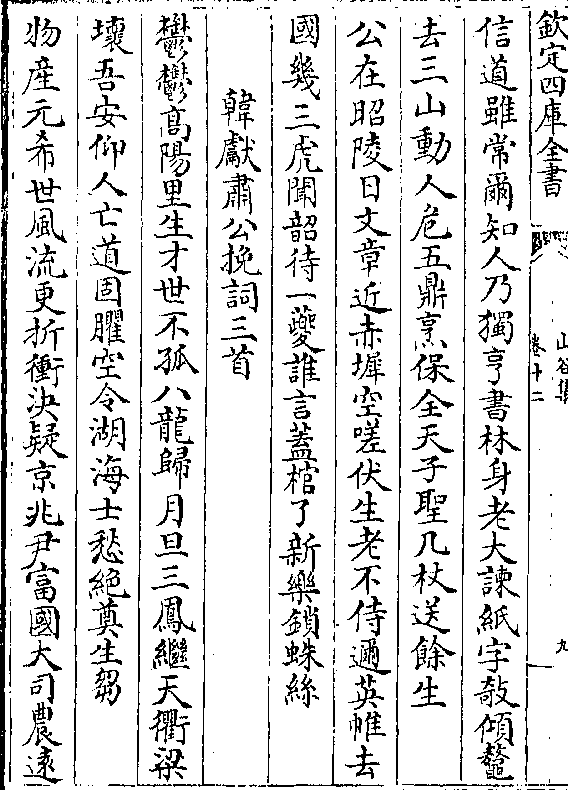 欽定四庫全書
山谷集
卷十二
九
信道雖常爾知人乃獨亨書林身老大諫紙字敧傾鼇
去三山動人危五鼎烹保全天子聖几杖送餘生
公在昭陵日文章近赤墀空嗟伏生老不侍邇英帷去
國幾三虎聞韶待一夔誰言蓋棺了新樂鎖蛛絲
韓獻肅公挽詞三首
鬱鬱高陽里生才世不孤八龍歸月旦三鳳繼天衢梁
壞吾安仰人亡道固臞空令湖海士愁絕奠生芻
物産元希世風流更折衝決疑京兆尹富國大司農逺